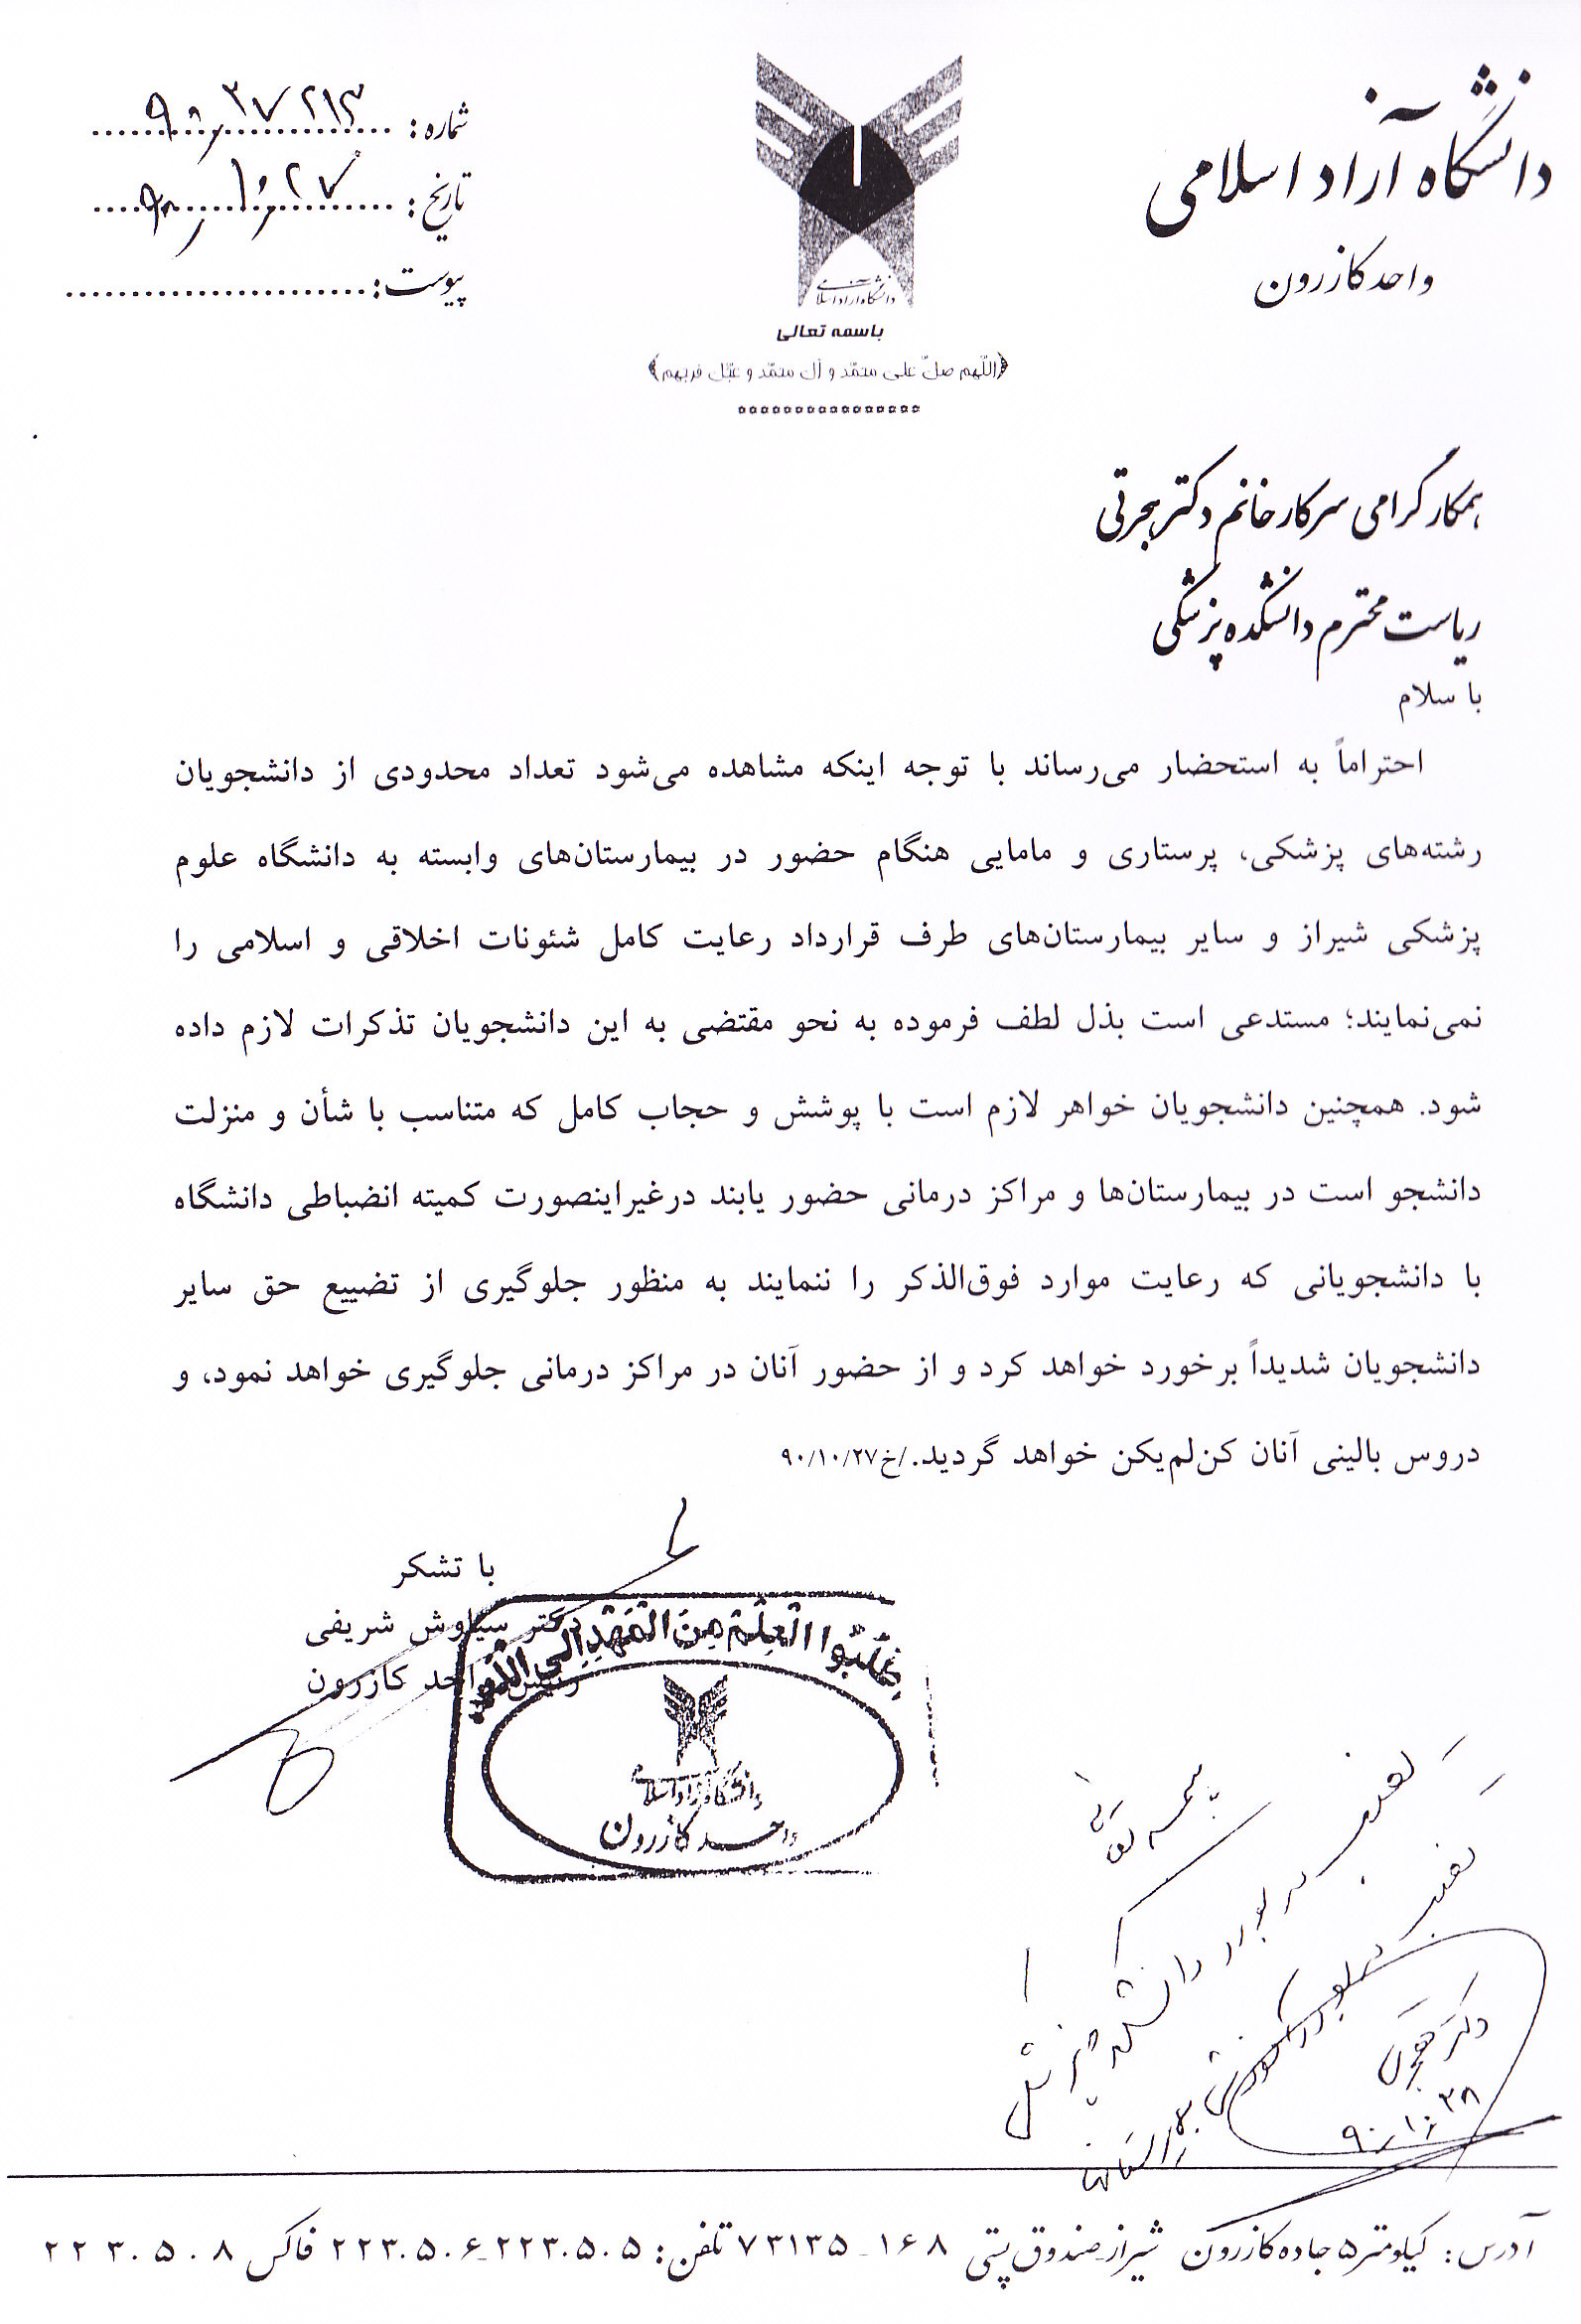 دانشگاه آزاد اسلامی
واحد کازرون
دانشگاه آزاد اسلامی
باسمه تعالی
﴿اللّهم صلّ علی محمّد و آل محمّد و عجّل فرجهم﴾
شماره: ۹۰٫۳۷۲۱۳
تاریخ: ۹۰٫۱۰٫۲۷
پیوست:
همکار گرامی سرکار خانم دکتر هجرتی
ریاست محترم دانشکده پزشکی
با سلام
احتراماً به استحضار می‌رساند با توجه اینکه مشاهده می‌شود تعداد محدودی از دانشجویان
رشته‌های پزشکی، پرستاری و مامایی هنگام حضور در بیمارستان‌های وابسته به دانشگاه علوم
پزشکی شیراز و سایر بیمارستان‌های طرف قرارداد رعایت کامل شئونات اخلاقی و اسلامی را
نمی‌نمایند؛ مستدعی است بذل لطف فرموده به نحو مقتضی به این دانشجویان تذکرات لازم داده
شود. همچنین دانشجویان خواهر لازم است با پوشش و حجاب کامل که متناسب با شأن و منزلت
دانشجو است در بیمارستان‌ها و مراکز درمانی حضور یابند درغیراینصورت کمیته انضباطی دانشگاه
با دانشجویانی که رعایت موارد فوق‌الذکر را ننمایند به منظور جلوگیری از تضییع حق سایر
دانشجویان شدیداً برخورد خواهد کرد و از حضور آنان در مراکز درمانی جلوگیری خواهد نمود، و
دروس بالینی آنان کن‌لم‌یکن خواهد گردید./خ۹۰/۱۰/۲۷
با تشکر
دکتر سیاوش شریفی
رئیس واحد کازرون
اطلبوا العلم من المهد الی اللحد
دانشگاه آزاد اسلامی
واحد کازرون
بسمه تعالی
نصب در بورد دانشکده پزشکی
نصب در بورد آموزشی بیمارستانها
دکتر هجرتی
۹۰٫۱۰٫۲۸
آدرس: کیلومتر ۵ جاده کازرون شیراز_صندوق پستی ۱۶۸_۷۳۱۳۵ تلفن: ۲۲۳۰۵۰۵_۲۲۳۰۵۰۶ فاکس ۲۲۳۰۵۰۸